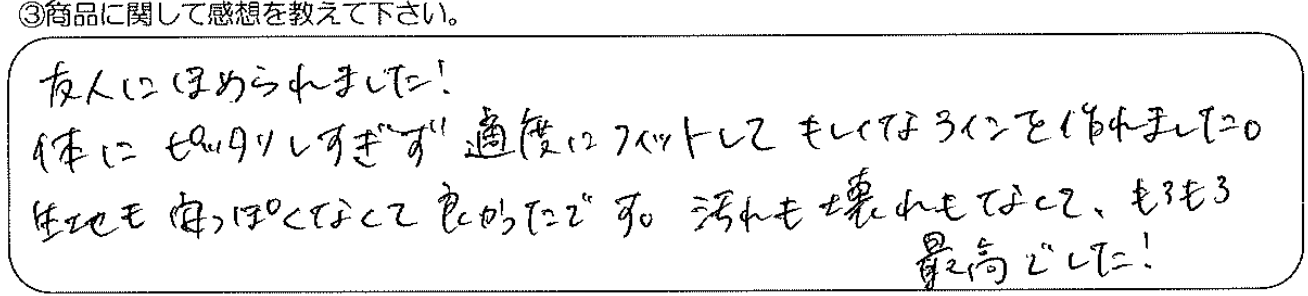 ③商品に関して感想を教えて下さい。
友人にほめられました!
体にピッタリしすぎず適度にフィットして ラインを作れました。
生地も安っぽくなくて良かったです。汚れも壊れもなくて、もろもろ
最高でした!